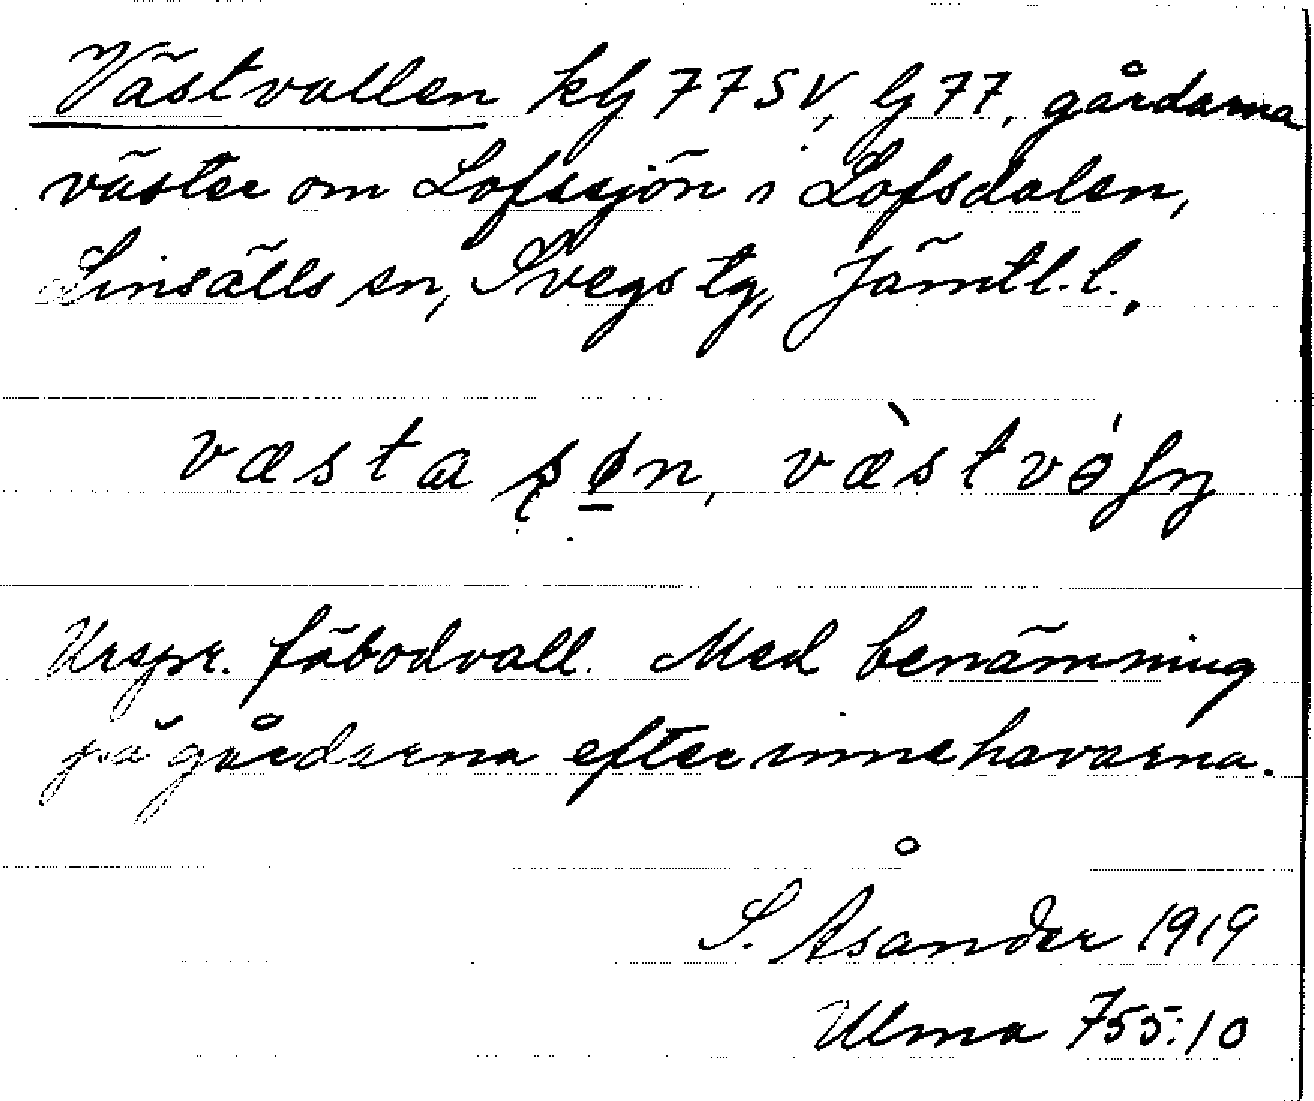 Västvallen klj 77 SV, lj 77, gårdarna
väster om Lofssjön i Lofsdalen,
Linsälls sn, Svegs tg, Jämtl. l.
væsta ʂøn, væ̀stvǿɽn̥
Urspr. fäbodvall. Med benämning
på gårdarna efter innehavarna.
S. Åsander 1919
Ulma 755:10